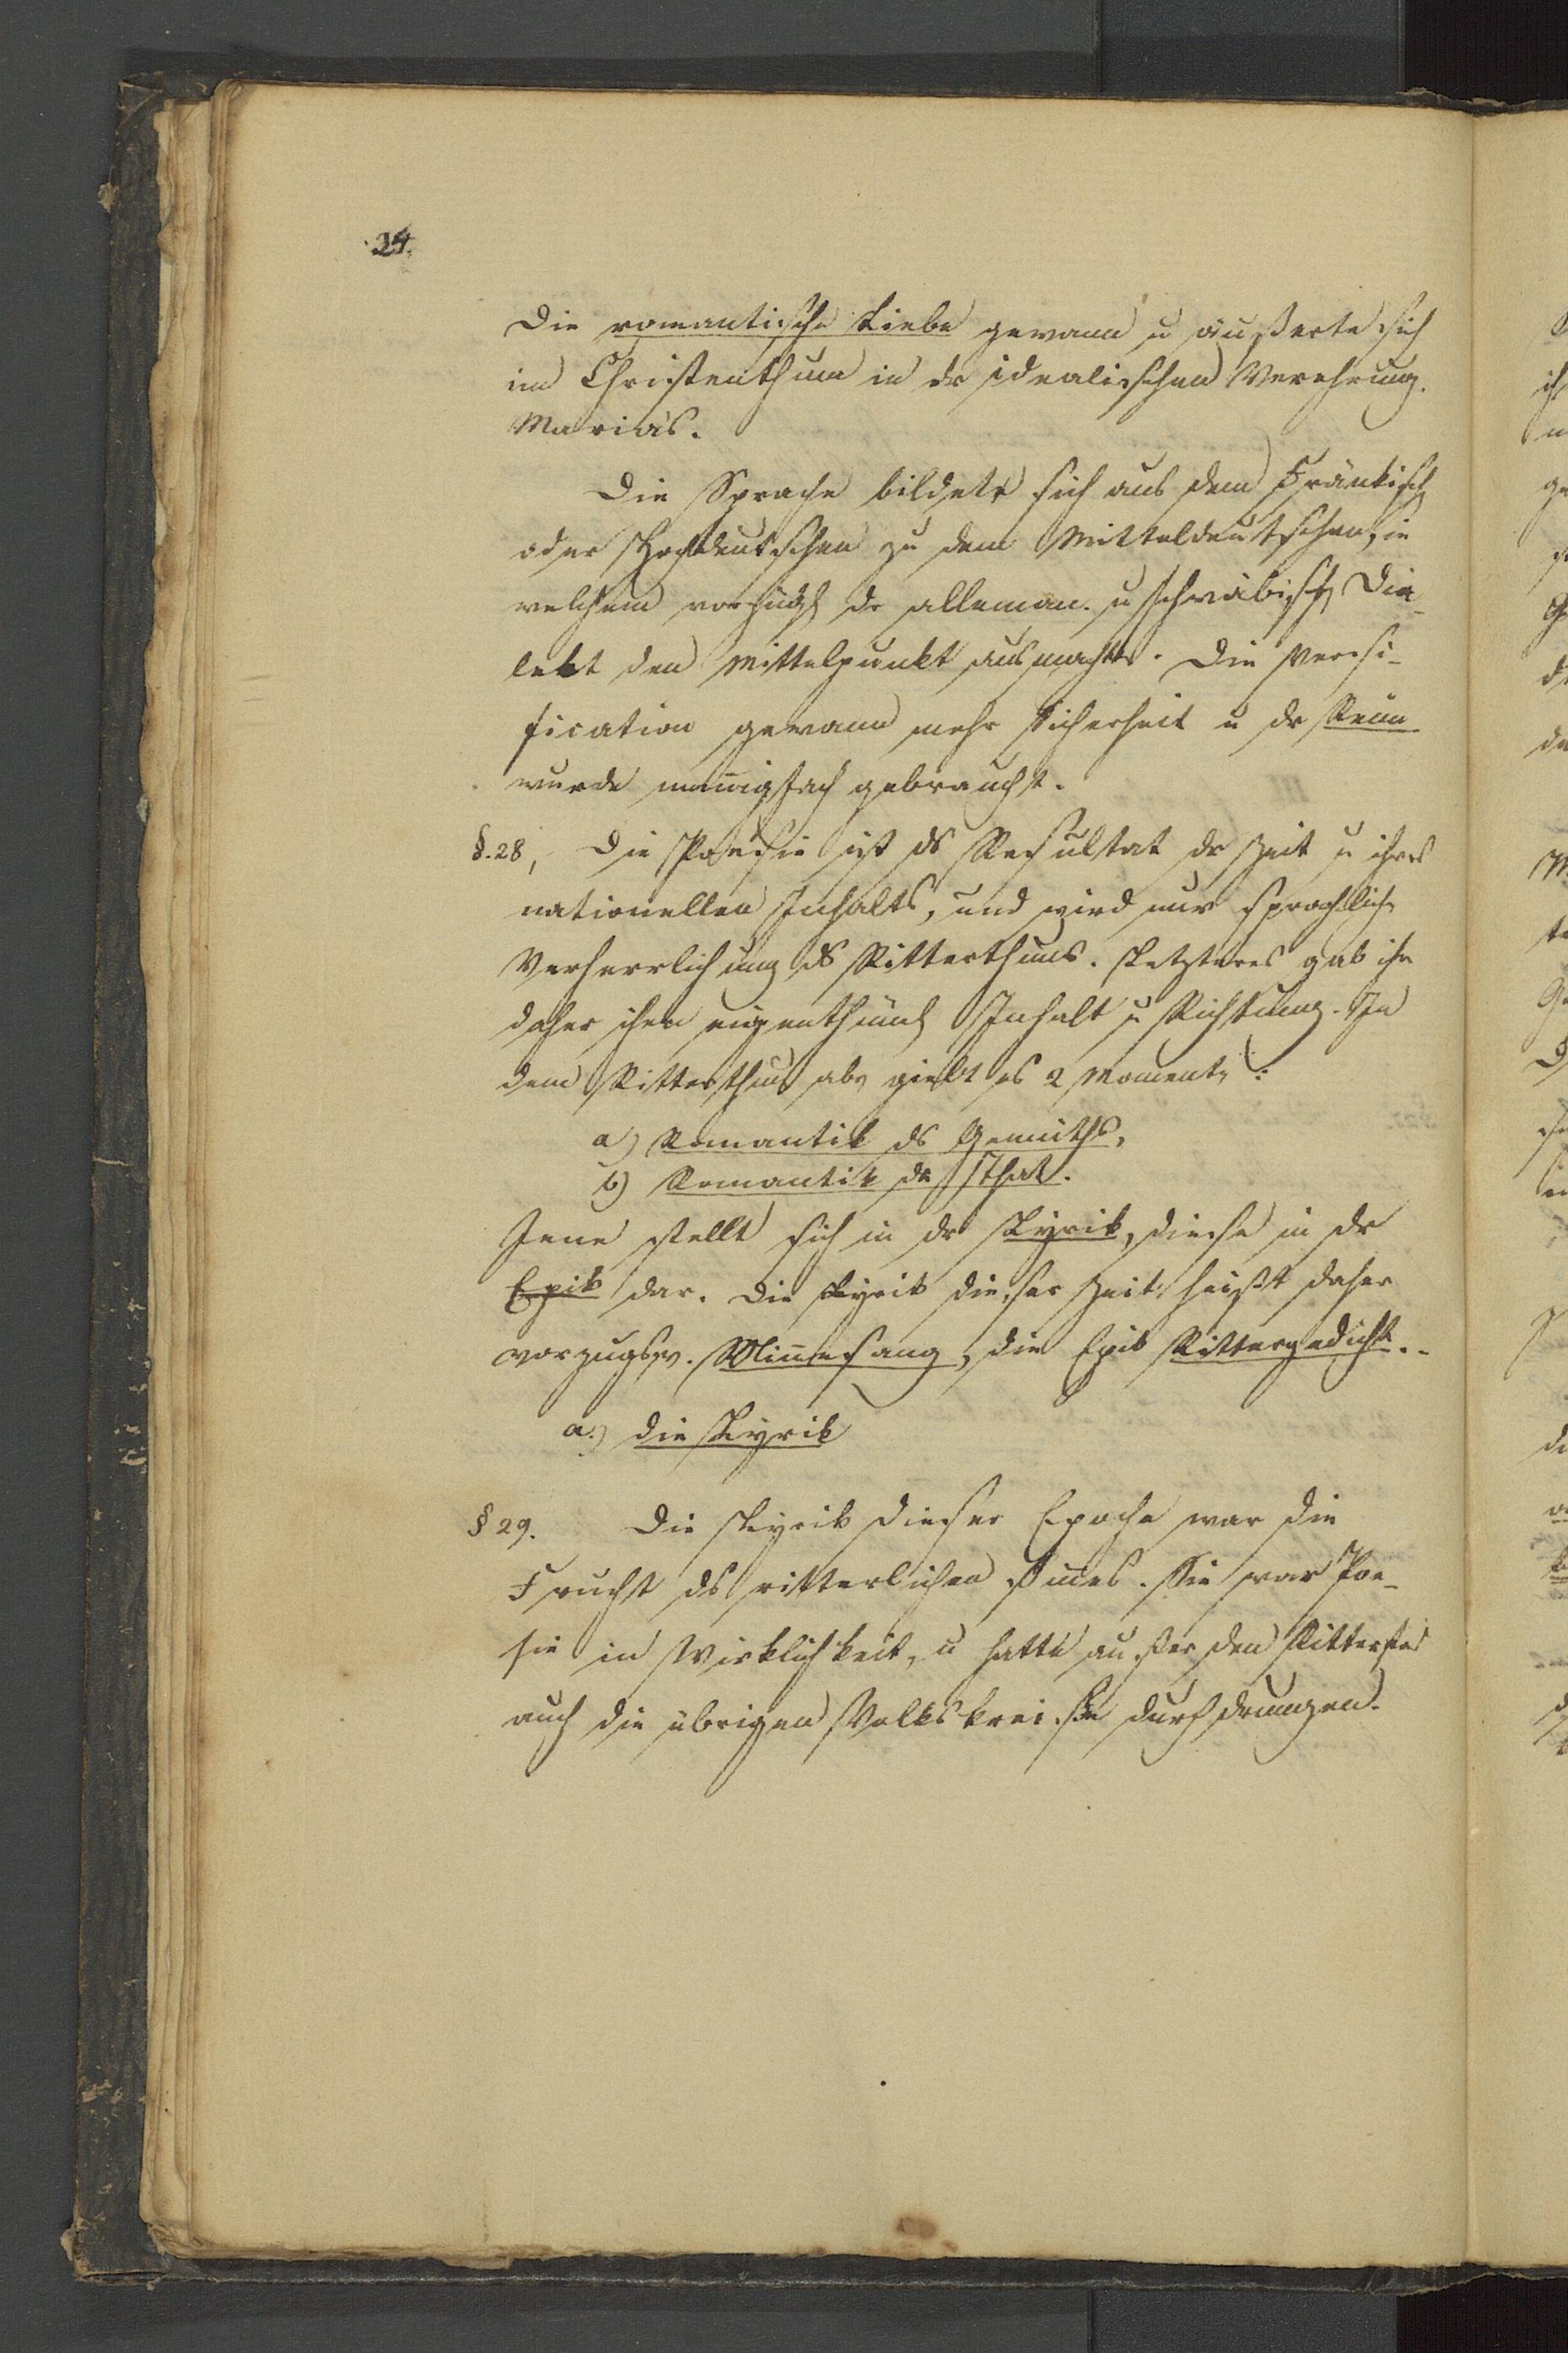 24.
Die romantische Liebe gewann u äußerte sich
im Christenthum in dr idealischen Verehrung
Marias.
Die Sprache bildete sich aus dem Fränkisch
oder Hochdeutschen zu dem Mitteldeutschen, in
welchem vorzügl dr alleman. u schwäbisch Dia-
lekt den Mittelpunkt ausmachte. Die Versi-
fication gewann mehr Sicherheit u dr Reim
wurde man̄igfach gebraucht.
§. 28, Die Poesie ist ds Resultat dr Zeit u ihres
nationellen Inhalts, und wird nur sprachliche
Verherrlichung ds Ritterthums. Letzteres gab ihr
daher ihren eigenthüml Inhalt u Richtung. In
dem Ritterthum aber giebt es 2 Momente:
a) Romantik ds Gemüths,
b) Romantik dr That.
Jene stellt sich in dr Lyrik, diese in dr
Epik dar. Die Lyrik dieser Zeit heißt daher
vorzugsw. Min̄esang, die Epik Rittergedicht. -
a.) die Lyrik
§ 29. Die Lyrik dieser Epoche war die
Frucht ds ritterlichen Sin̄es. Sie war Poe-
sie in Wirklichkeit, u hatte außer den Rittern
auch die übrigen Volkskreise durchdrungen.